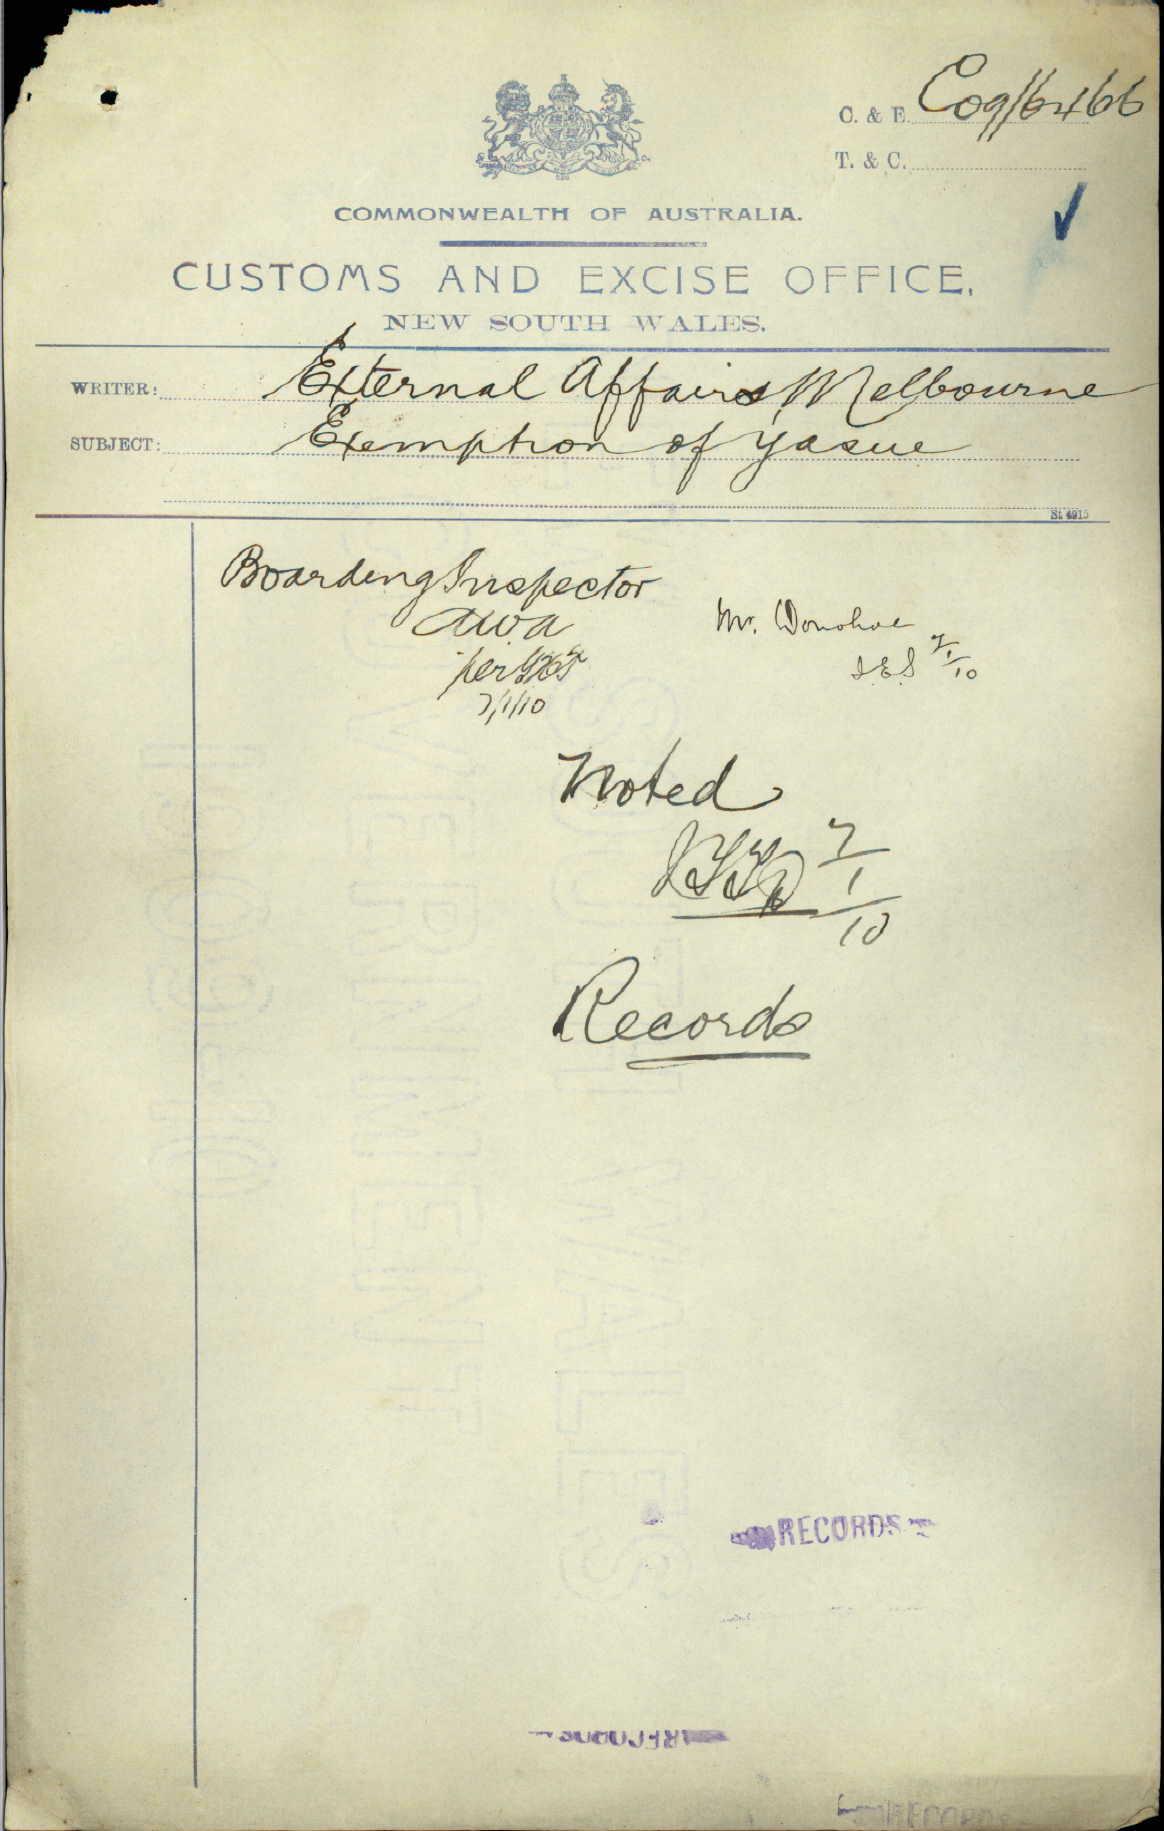 C. & E. C09/16466
T. & C.
COMMONWEALTH OF AUSTRALIA.
CUSTOMS AND EXCISE OFFICE,
NEW SOUTH WALES.
WRITER: External Affairs, Melbourne
SUBJECT: Exemption of Yasue
St. 4915
Boarding Inspector
AWA
per
7/1/10
Mr. Donohoe
7/1/10
Noted
7/1/10
Records
RECORDS
RECORDS
RECORDS